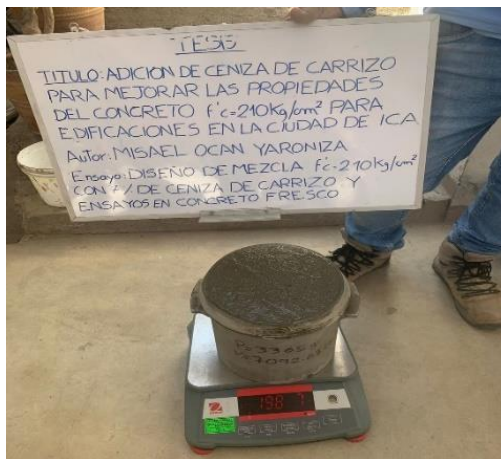 TESIS
TITULO: ADICION DE CENIZA DE CARRIZO
PARA MEJORAR LAS PROPIEDADES
DEL CONCRETO f'c=210Kg/cm² PARA
EDIFICACIONES EN LA CIUDAD DE ICA
Autor: MISAEL OCAN YARONIZA
Ensayo: DISEÑO DE MEZCLA f'c=210kg/cm²
CON % DE CENIZA DE CARRIZO Y
ENSAYOS EN CONCRETO FRESCO